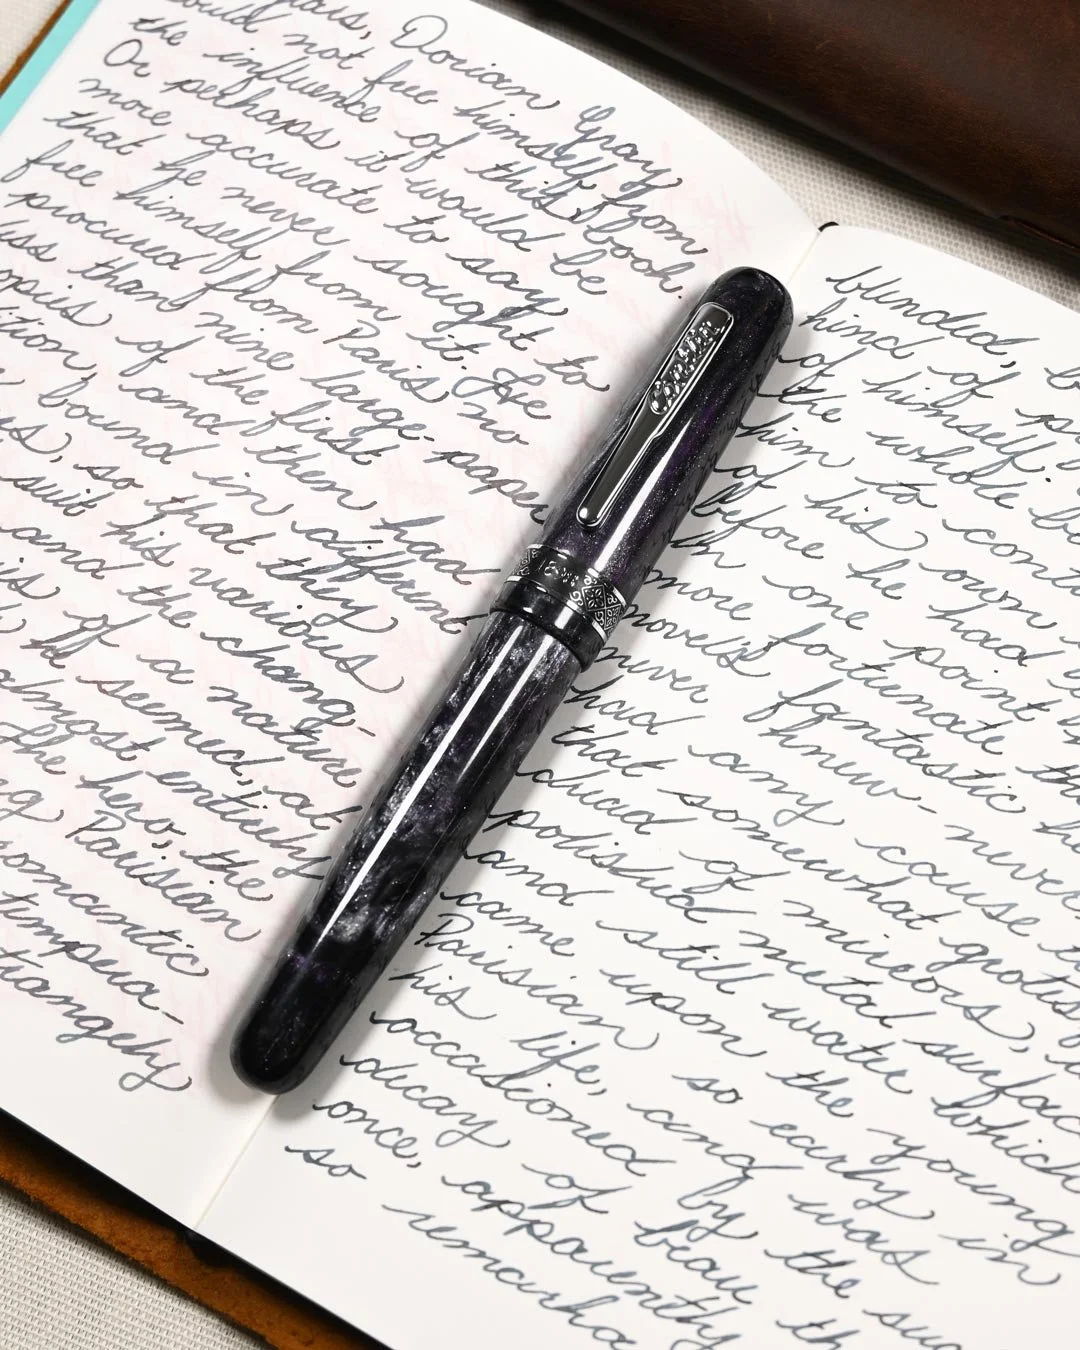 Dorian Gray
could not free himself from
the influence of this book.
Or perhaps it would be
more accurate to say
that he never sought to
free himself from it. He
procured from Paris no
than nine large-paper
copies of the first
and then had
bound in different
so that they
suit his various
and the chang-
of a nature
he seemed, at
almost entirely
The hero, the
Parisian
romantic
tempera-
strangely
Conklin
1898
blended,
kind of
of himself.
the whole
him to
of his own
before he had
In one point
more fortunate
novel's fantastic
never knew-
had any cause
that somewhat
dread of mirrors,
polished metal surfac
and still water which
came upon the young
Parisian so early in
his life, and was
occasioned by the
decay of beau
once, apparently,
so remarka